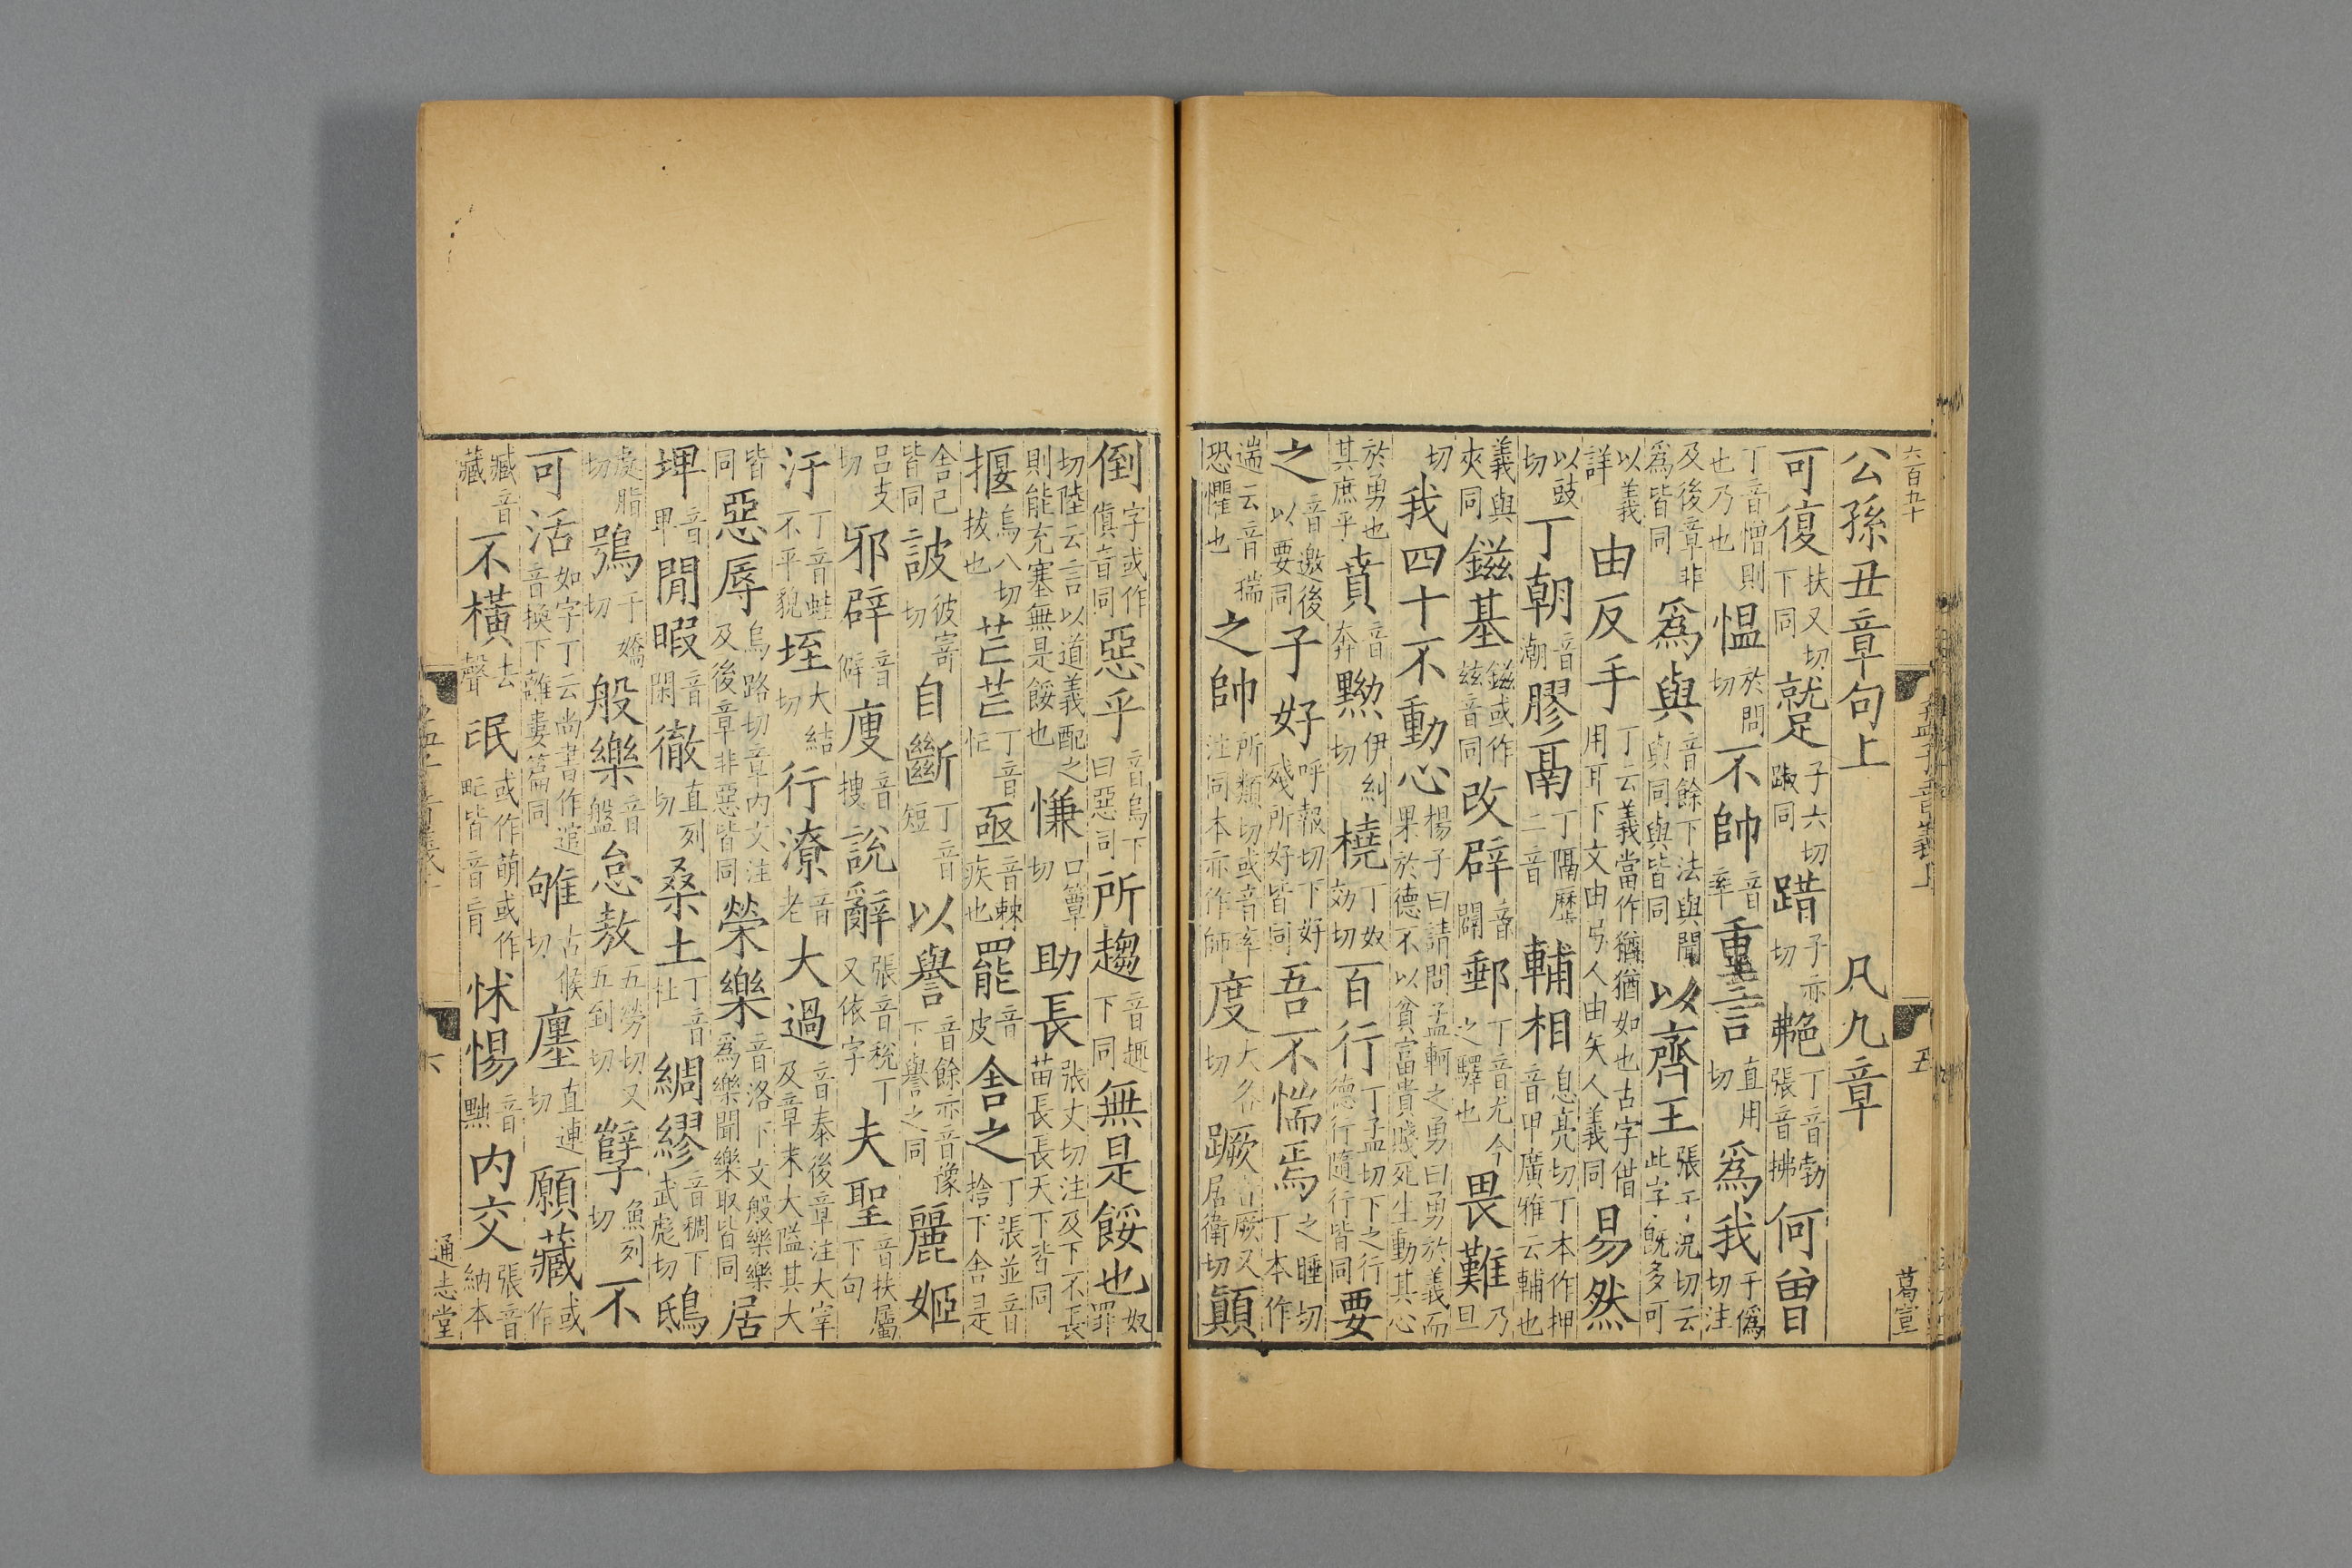 公孫丑章句上 凡九章
可復扶又切下同蹵子六切踧同踖子亦切艴丁音勃張音拂何曾
丁音憎則也乃也愠於問切不帥音率重言直用切爲我于僞切注
及後章非爲皆同爲與音餘下法與聞與同與皆同以齊王張于況切云此字既多可
以義詳由反手丁云義當作猶猶如也古字借用耳下文由弓人由矢人義同易然
以豉切丁朝音潮膠鬲丁隔歷二音輔相息亮切丁本作押音甲廣雅云輔也
義與夾同鎡基鎡或作兹音同改辟音闢郵丁音尤今之驛也畏難乃旦
切我四十不動心楊子曰請問孟軻之勇曰勇於義而果於德不以貧富貴賤死生動其心
於勇也其庶乎賁音奔黝伊糾切橈丁奴効切百行丁孟切下之行德行隨行皆同要
之音邀後以要同子好呼報切下好殘所好皆同吾不惴焉之睡切丁本作
遄云音瑞恐懼也之帥所類切或音率注同本亦作師度大各切蹶音厥又居衛切顚
倒字或作傎音同惡乎音烏下曰惡司所趨音趣下同無是餒也奴罪
切陸云言以道義配之則能充塞無是餒也慊口簟切助長張丈切注及下不長苗長長天下皆同
揠烏八切拔也芒芒丁音忙亟音棘疾也罷音皮舍之丁張並音捨下舍是
舍己皆同詖彼寄切自斷丁音短以譽音餘亦音豫下譽之同麗姬
吕支切邪辟音僻廋音搜說辭張音稅丁又依字夫聖音扶屬下句
汙丁音蛙不平貌垤大結切行潦音老大過音泰後章注大宰及章末大隘其大
皆同惡辱烏路切章内文注及後章非惡皆同榮樂音洛下文般樂樂爲樂聞樂取皆同居
埤音卑閒暇音閑徹直列切桑土丁音杜綢繆音稠下武彪切鴟
處脂切鴞于嬌切般樂音盤怠敖五勞切又五到切孼魚列切不
可活如字丁云尚書作逭音換下離婁篇同雊古候切廛直連切願藏或作
臧音藏不橫去聲氓或作萌或作甿皆音盲怵惕音黜内交張音納本
六百九十
孟子音義上
五
葛宣
六
通志堂